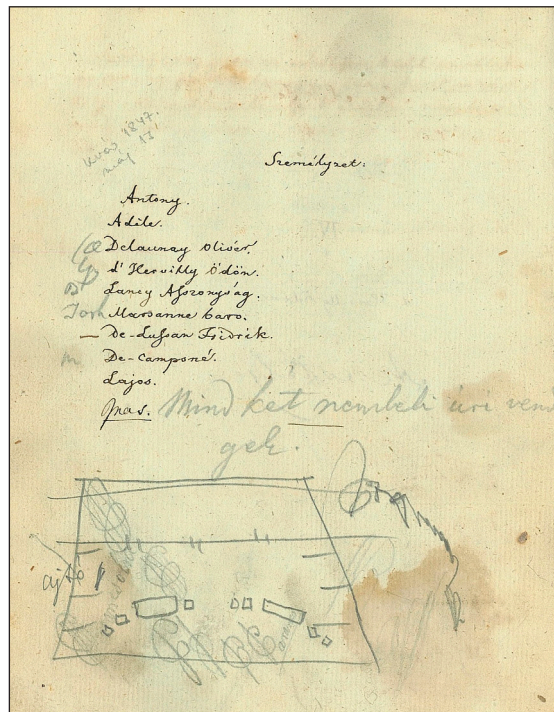 Kvár 1847.
máj. 13.
Személyzet:
Antony.
Adéle.
Delaunay Olivér.
d'Hervilly Ödön.
Lancy Aſszonyság.
Marsanne baro.
De-Luſsan Fridrik.
De-Camponé.
Lajos.
Inas. Mind két nembeli úri ven
gek.
ajtó